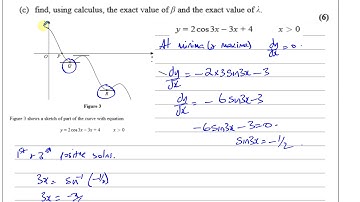 (c) find, using calculus, the exact value of β and the exact value of λ.
(6)
y = 2 cos 3x − 3x + 4 x > 0
At minima (& maxima) dy/dx = 0.
dy/dx = −2×3sin3x − 3
dy/dx = −6sin3x − 3
−6sin3x − 3 = 0.
sin3x = −1/2.
O
Figure 3
Figure 3 shows a sketch of part of the curve with equation
y = 2 cos 3x − 3x + 4 x > 0
1st + 3rd positive solns.
3x = sin⁻¹(−1/2)
3x =